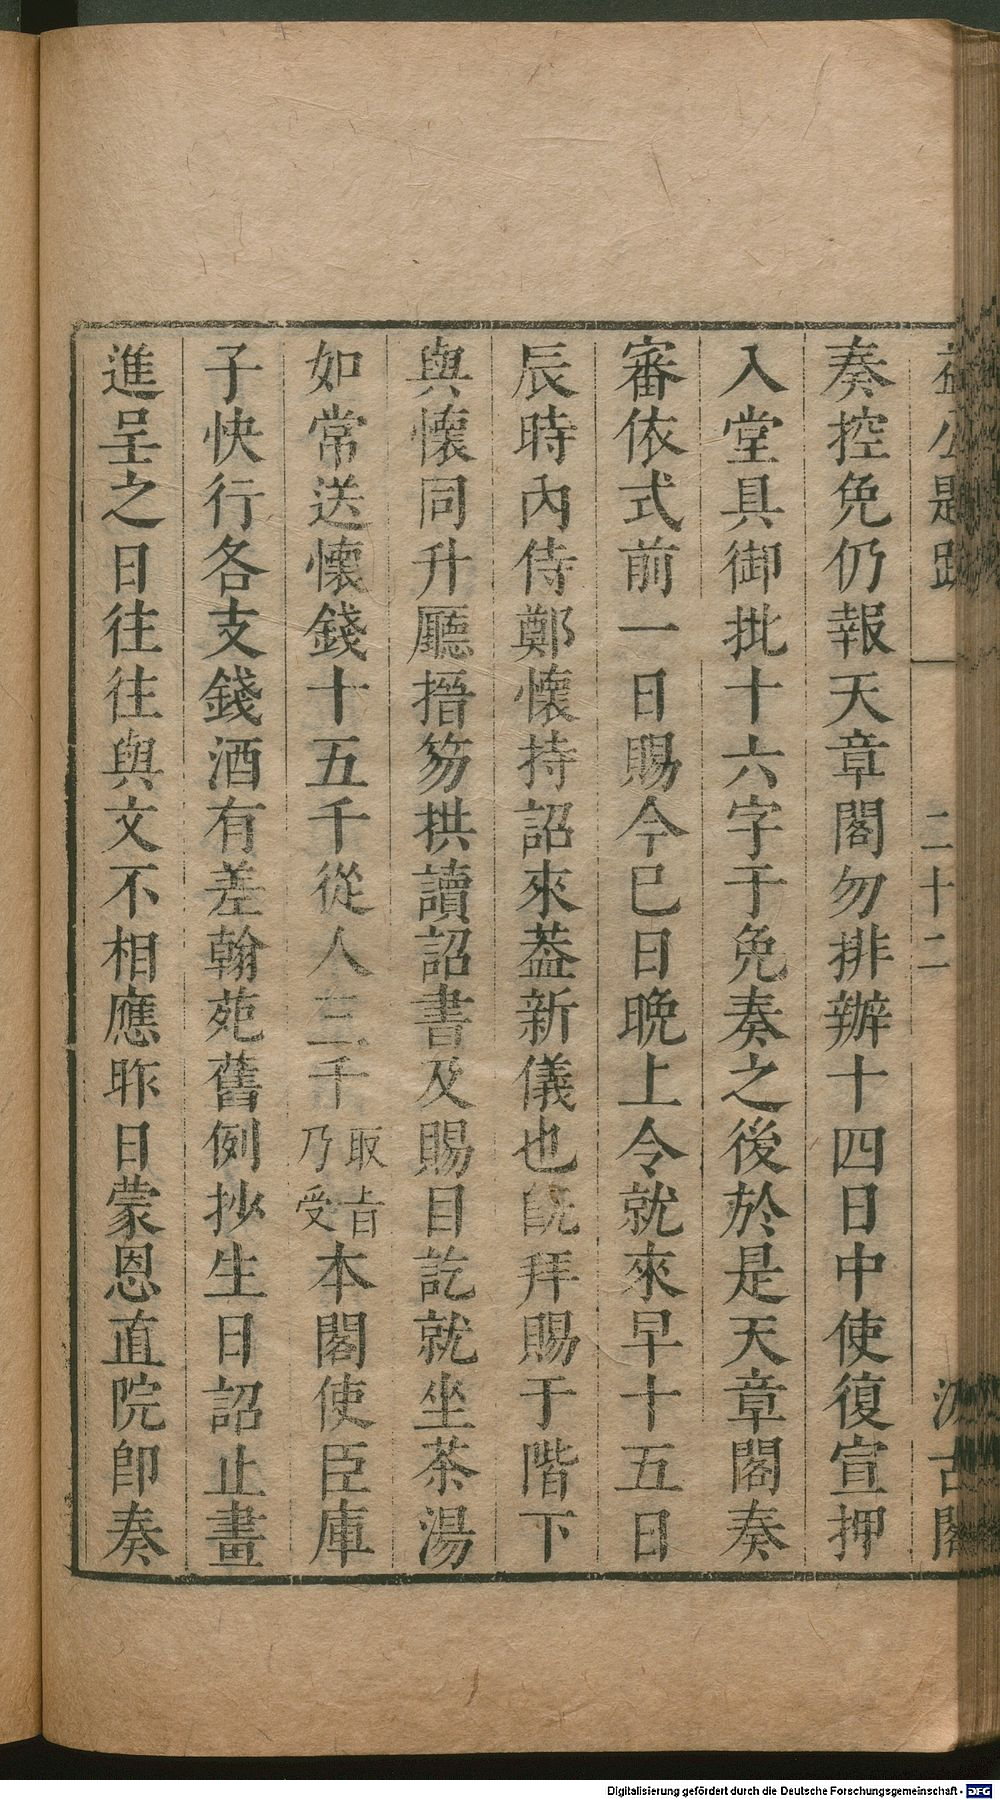 益公題跋 二十二 汲古閣
奏控免仍報天章閣勿排辦十四日中使復宣押
入堂具御批十六字于免奏之後於是天章閣奏
審依式前一日賜今巳日晚上令就來早十五日
辰時內侍鄭懷持詔來葢新儀也旣拜賜于階下
與懷同升廳搢笏拱讀詔書及賜目訖就坐茶湯
如常送懷錢十五千從人三千取旨乃受本閣使臣庫
子快行各支錢酒有差翰苑舊例抄生日詔止畫
進呈之日往往與文不相應昨日蒙恩直院卽奏
Digitalisierung gefördert durch die Deutsche Forschungsgemeinschaft - DFG